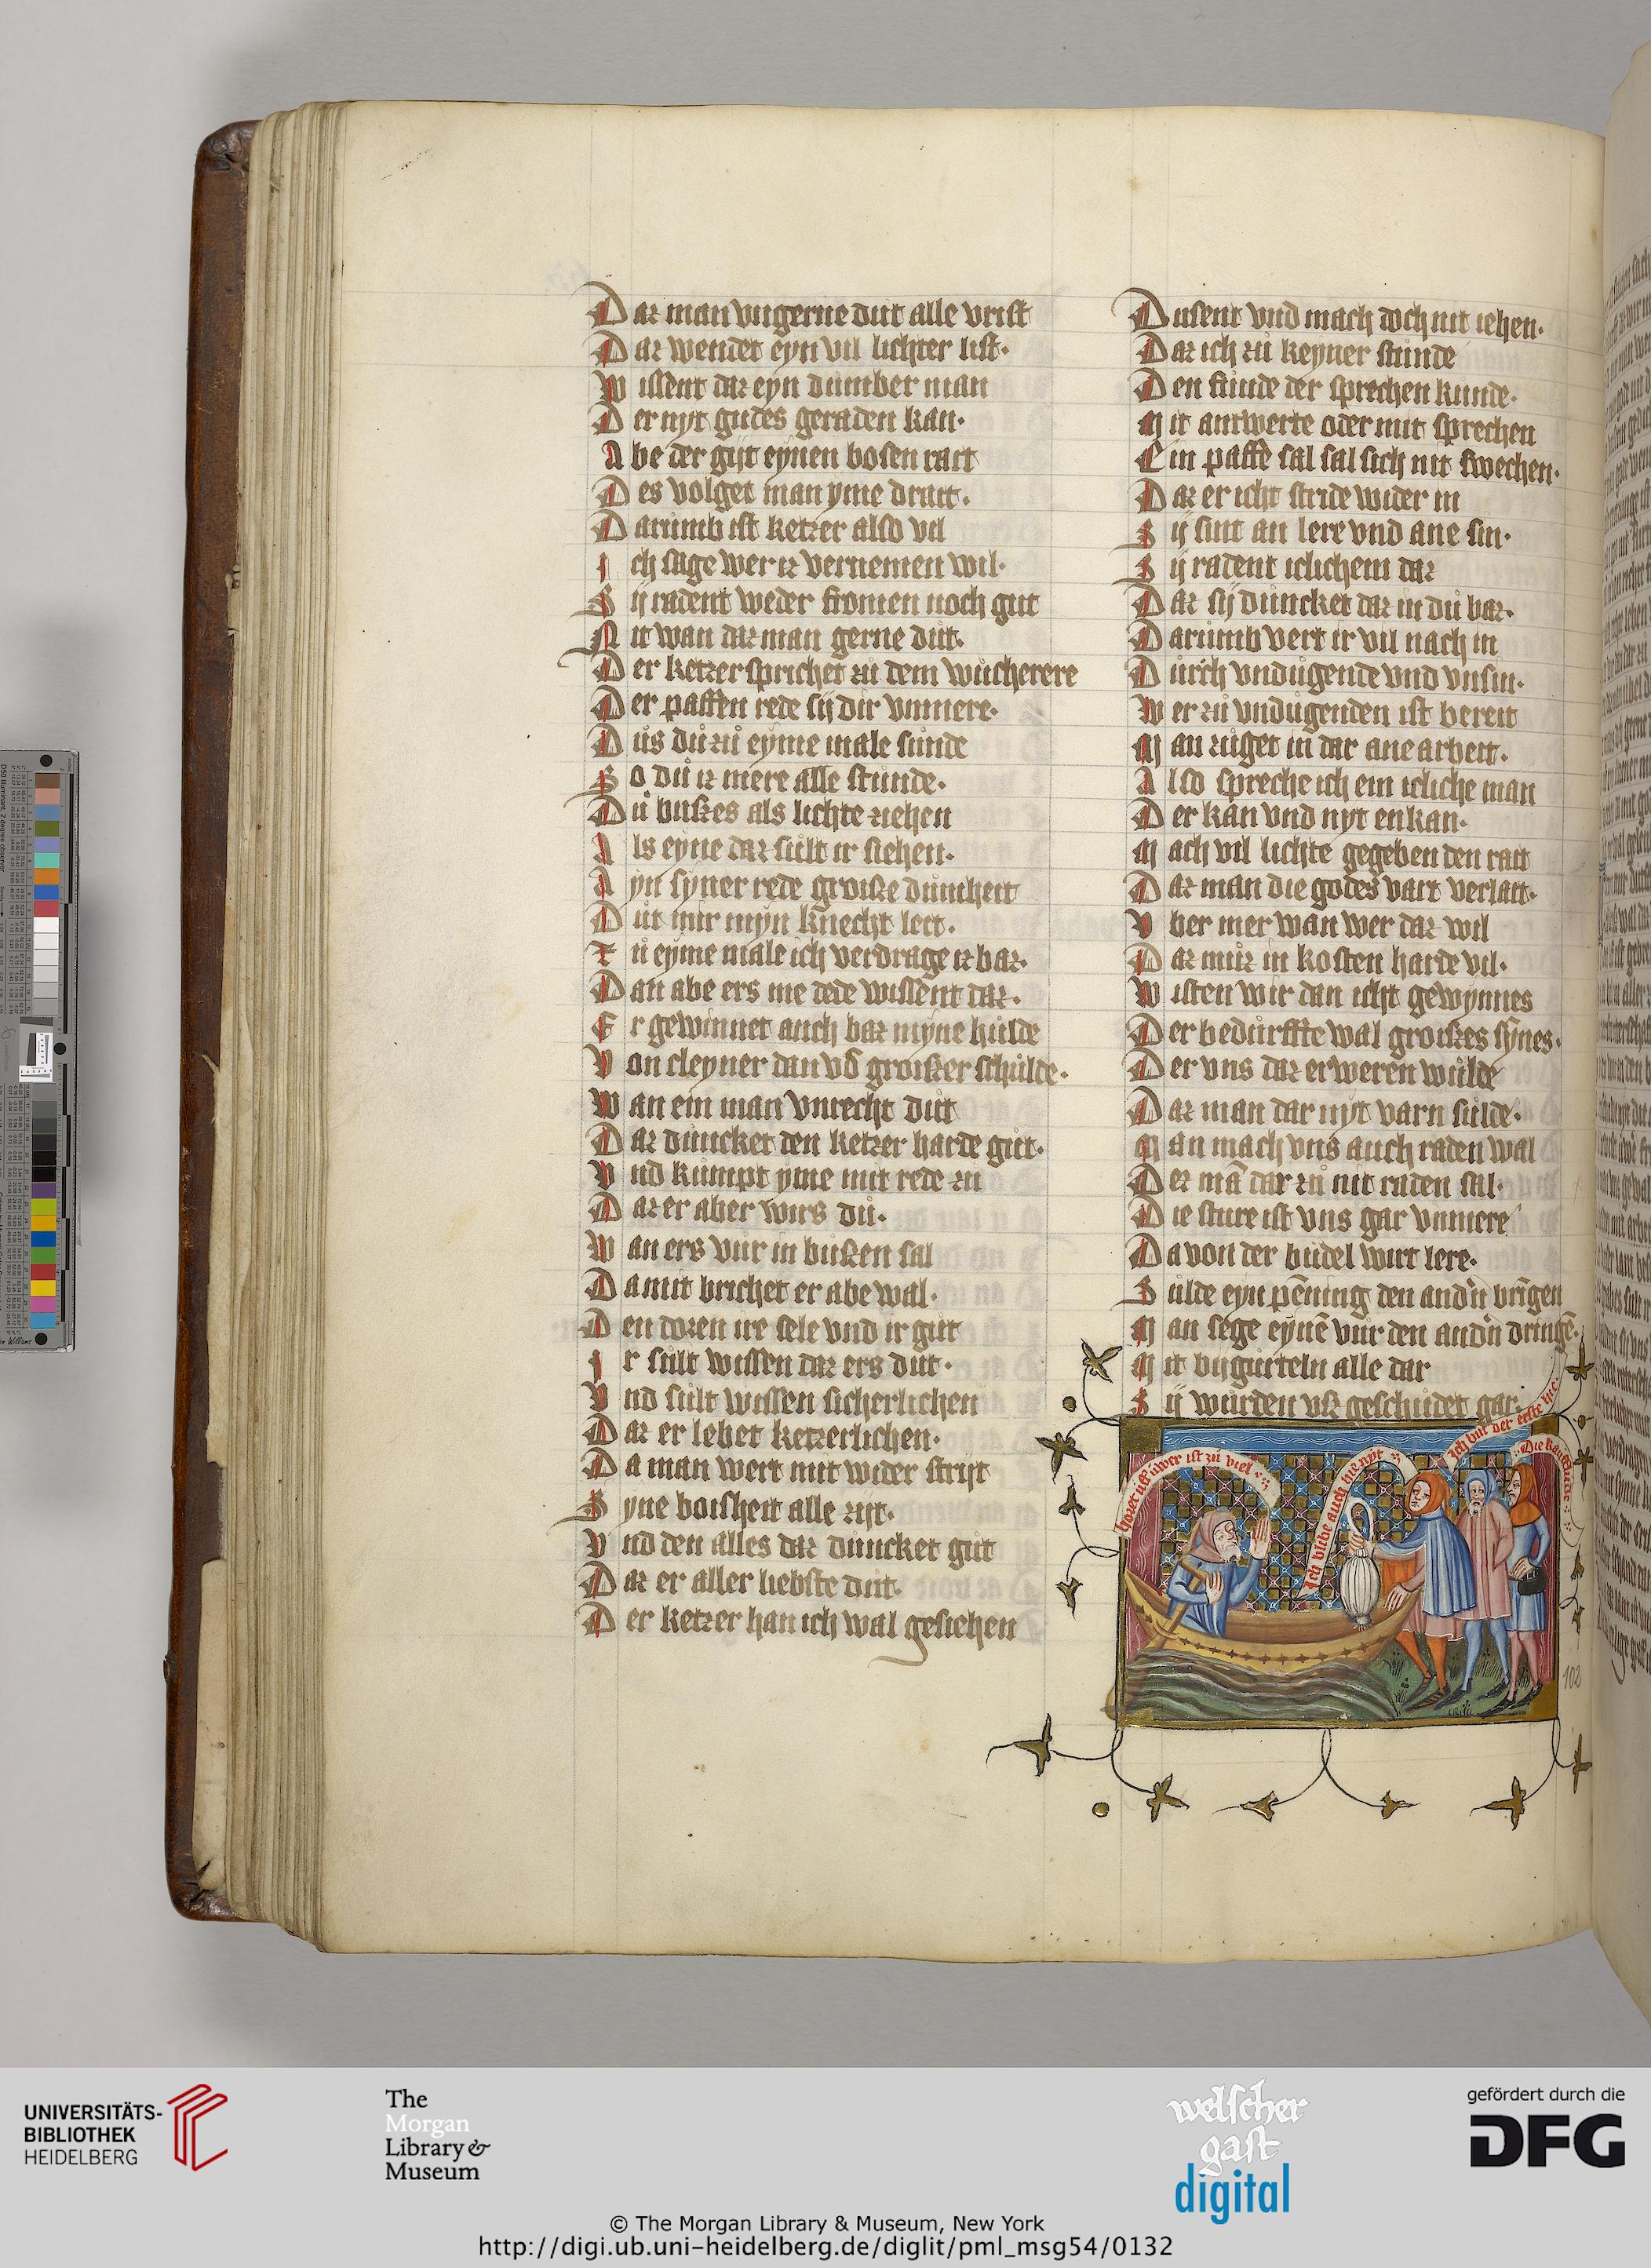 Daz man vngerne dut alle vrist
Daz wendet eyn vil lichter list·
Wissent daz eyn dumber man
Der nyt gudes geraden kan·
Abe der gijt eynen bosen rait
Des volget man yme drait·
Darumb ist ketzer also vil
Ich sage wer iz vernemen wil·
Sij radent weder fromen noch gut
Nit wan daz man gerne dut·
Der ketzer sprichet zu dem wucherere
Der paffen rede sij dir vnmere·
Dus du zu eyme male sunde
So du iz mere alle stunde·
Du bußes als lichte ziehen
Als eyne daz sult ir siehen·
Ayn syner rede groiße dumheit
Dut mir myn knecht leit·
Zu eyme male ich verdrage iz baz·
Dan abe ers me dede wissent daz·
Er gewinnet auch baz myne hulde
Von cleyner dan vō groißer schulde·
Wan ein man vnrecht dut
Daz duncket den ketzer harde gut·
Vnd kumpt yme mit rede zu
Daz er aber wirs du·
Wan ers vur in bußen sal
Damit brichet er abe wal·
Den doren ire sele vnd ir gut
Ir sult wissen daz ers dut·
Vnd sult wissen sicherlichen
Daz er lebet ketzerlichen·
Da man wert mit wider strijt
Syne boisheit alle zijt·
Vnd den alles daz duncket gut
Daz er aller liebste dut·
Der ketzer han ich wal gesiehen
Dusent vnd mach doch nit iehen·
Daz ich zu keyner stunde
Den funde der sprechen kunde·
Mit antwerte oder mit sprechen
Ein paffe sal sal sich nit swechen·
Daz er icht stride wider in
Sij sint an lere vnd ane sin·
Sij radent iclichem daz
Daz sij duncket daz in du baz·
Darumb vert ir vil nach in
Durch vndugende vnd vnsin·
Wer zu vndugenden ist bereit
Man zuget in dar ane arbeit·
Also spreche ich ein icliche man
Der kan vnd nyt enkan·
Mach vil lichte gegeben den rait
Daz man die godes vart verlait·
Vber mer wan wer dar wil
Daz muz in kosten harde vil·
Wisten wir dan icht gewynnes
Der bedurffte wal groißes synes·
Der vns daz erweren wulde
Daz man dar nyt varn sulde·
Man mach vns auch raden wal
Dez mā dar zu nit raden sal·
Die sture ist vns gar vnmere
Da von der budel wirt lere·
Sulde eyn pēning den and'n brīgen
Man sege eynē vur den and'n dringē·
Mit bugurteln alle dar
Sij wurden vß geschudet gar·
horet uff uwer ist zu viel
Ich blibe auch hie nyt
Ich bin der erste hie
Die kauflude
102
UNIVERSITÄTS-
BIBLIOTHEK
HEIDELBERG
The
Morgan
Library &
Museum
welscher
gast
digital
gefördert durch die
DFG
© The Morgan Library & Museum, New York
http://digi.ub.uni-heidelberg.de/diglit/pml_msg54/0132